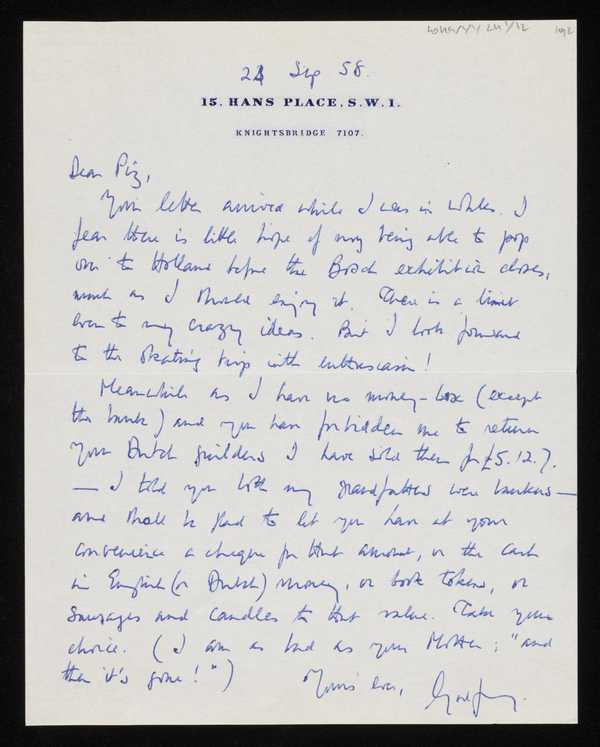 24 Sep 58.
15, HANS PLACE, S.W.1.
KNIGHTSBRIDGE 7107.
Dear Piz,
Your letter arrived while I was in Wales. I
fear there is little hope of my being able to pop
over to Holland before the Bosch exhibition closes,
much as I should enjoy it. There is a limit
even to my crazy ideas. But I look forward
to the skating trip with enthusiasm!
Meanwhile as I have no money-box (except
the bank) and you have forbidden me to return
your Dutch guilders I have sold them for £5.12.7.
— I told you both my grandfathers were bankers —
and shall be glad to let you have at your
convenience a cheque for that amount, or the cash
in English (or Dutch) money, or book tokens, or
sausages and candles to that value. Take your
choice. (I am as bad as your Mother; "and
then it's gone!")
Yours ever,
Godfrey.